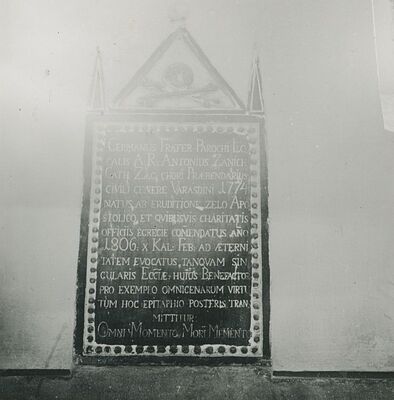 GERMANUS FRATER PAROCHI LO
CALIS A. R. ANTONIUS ZANICH
CATH. ZAG. CHORI PRAEBENDARIUS
CIVILI GENERE VARASDINI 1774
NATUS, AB ERUDITIONE, ZELO APO
STOLICO, ET QUIBUSVIS CHARITATIS
OFFICIIS EGREGIE COMENDATUS ANO
1806. X KAL. FEB. AD AETERNI
TATEM EVOCATUS, TANQVAM SIN
GULARIS ECCAE HUJUS BENEFACTOR
PRO EXEMPLO OMNIGENARUM VIRTU
TUM HOC EPITAPHIO POSTERIS TRAN
MITTITUR
OMNI MOMENTO MORI MEMENTO